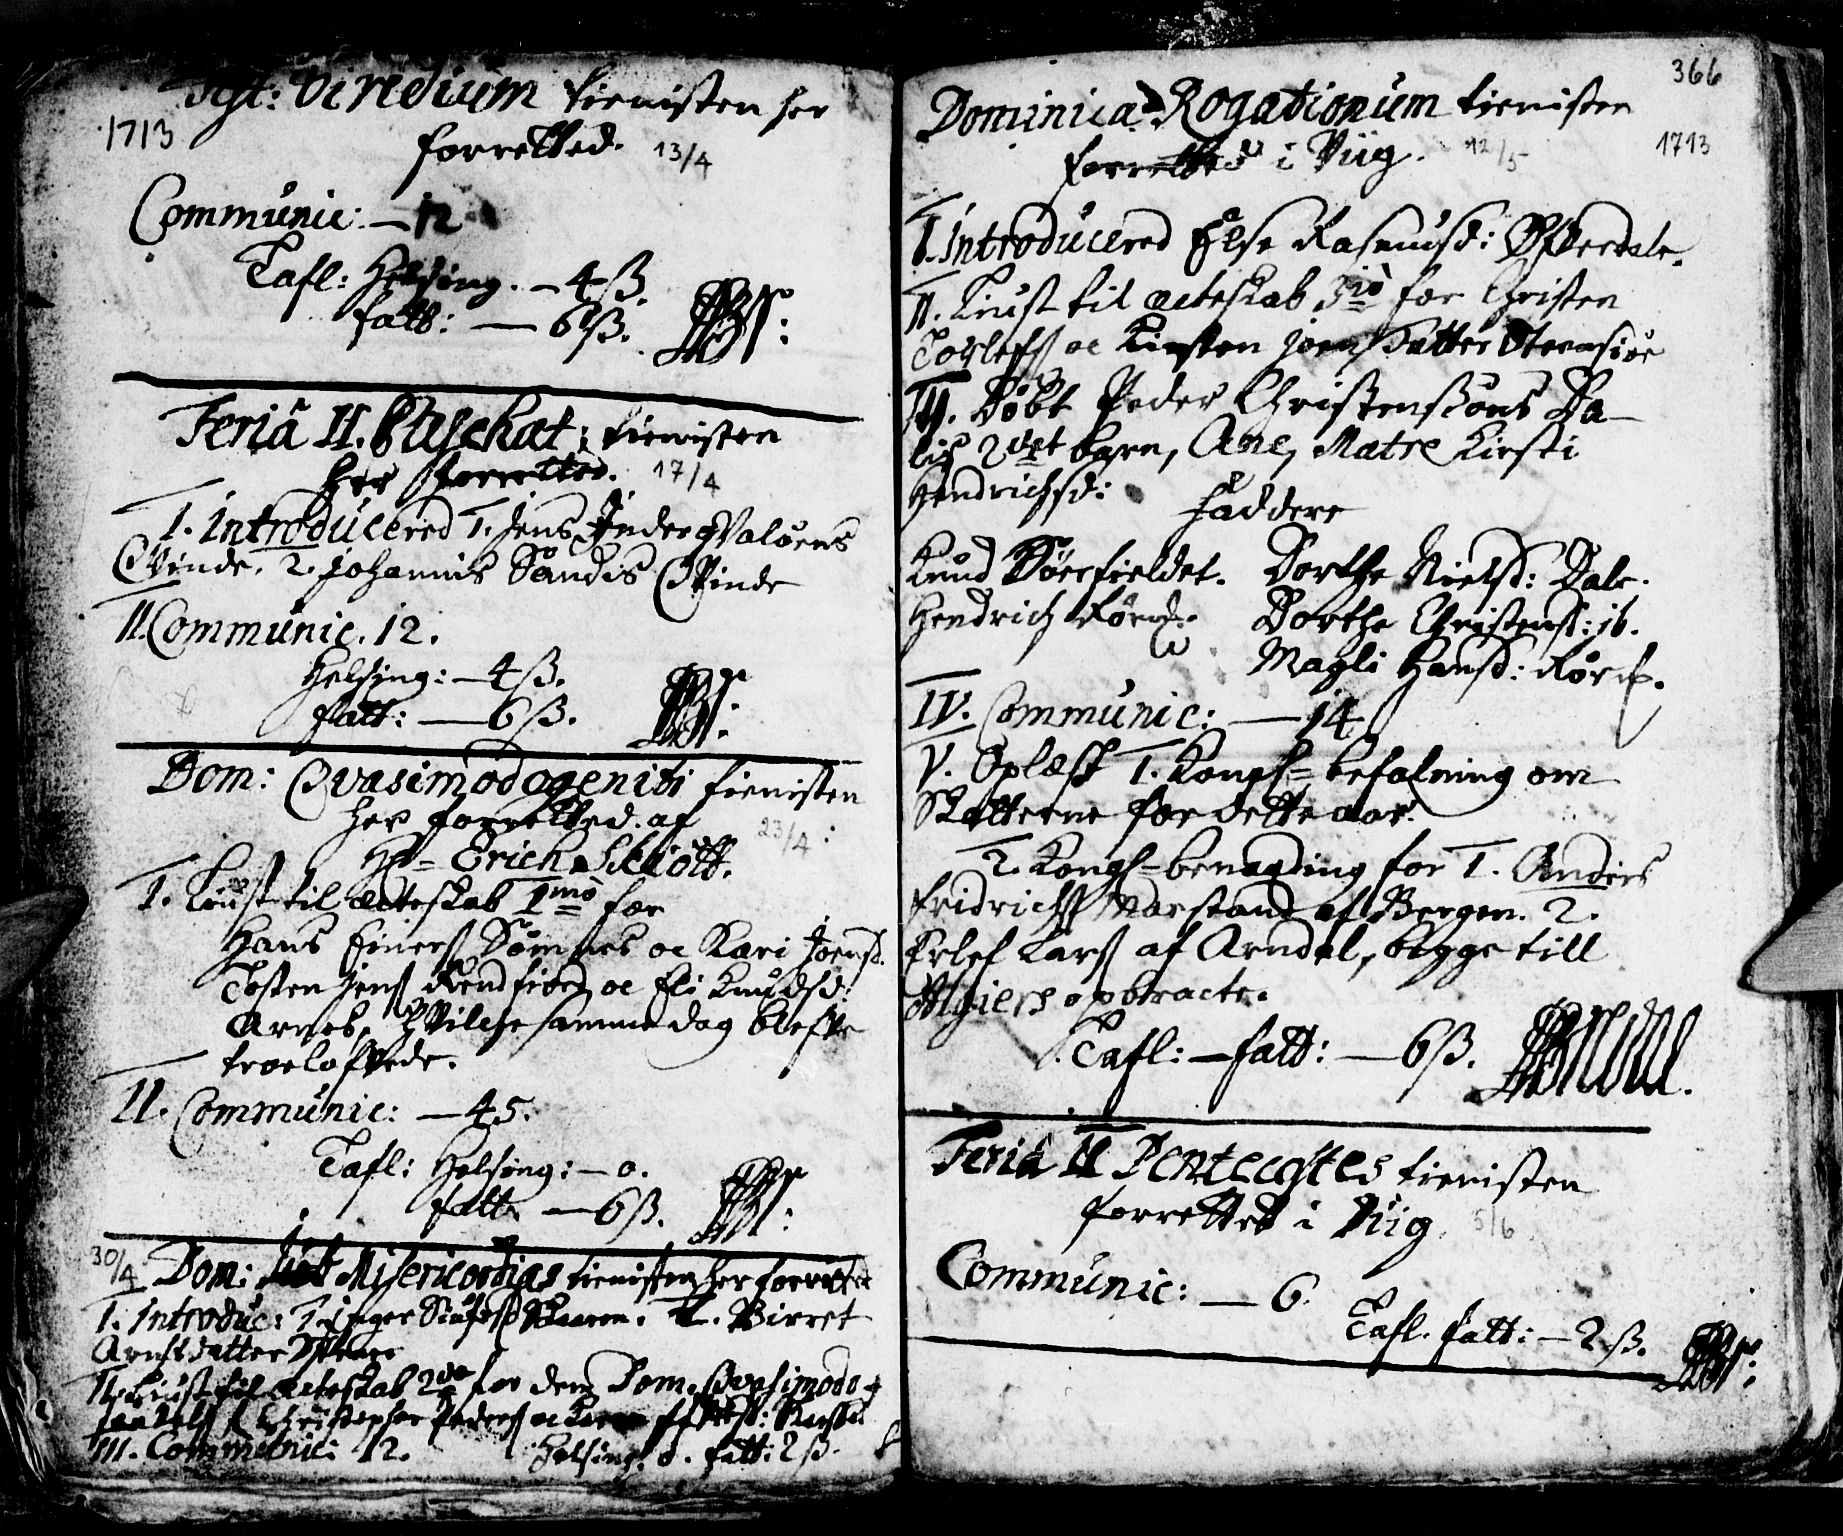 Fest: Viredium tienisten her
1713
forretted. 13/4
Communic: — 12
Tafl: Helsing. — 4 ß.
fatt: — 6 ß.
Feria II. Paschat: tienisten
her forretted. 17/4
I. Introducered 1. Jens Inderqvaløens
Qvinde. 2. Johannis Sandis Qvinde
II. Communic. 12.
Helsing: — 4 ß.
fatt: — 6 ß.
Dom: Qvasimodogeniti tienisten
her forretted af 23/4
Hr= Erich Schiøtt.
I. Liust til ecteskab 1mo for
Hans Einers Sømnes oc Kari Joensd.
Tosten Jens oc Eli Knudsd:
hvilche samme dag blefve
troelofvede.
II. Communic: — 45.
Tafl: Helsing: — 0.
fatt: — 6 ß.
30/4 Dom: Misericordias tienisten her forrettet
I. Introduc: 1. Inger 2. Birret
Arnesdatter
II. Liust til ecteskab 2do for dem Dom. Qvasimodo-
Christopher Peders oc
III. Communic: 12. Helsing. 0. fatt: 2 ß.
366
Dominica Rogationum tienisten
forretted i Viig. 12/5 1713
I. Introducered Else Rasmusd: Østerdale.
II. Liust til ecteskab 3tio for Christen
oc Kirsten Joens datter
III. Døbt Peder Christensøns Da-
lis 2det barn, Ane, Matre Kirsti
Hendrichsd:
Faddere
Knud Døerfieldet. Dorthe Nielsd: Dale.
Hendrich Dorthe Christensd: ib.
Magli Hansd:
IV. Communic: — 14
V. Oplæst 1. Kongs= befalning om
Skatterne for dette aar.
2. Kongs= benaading for 1. Anders
Fridrichs Marstand af Bergen. 2.
Erlef Lars af Arndal, begge till
Algiers opbracte.
Tafl: — fatt: — 6 ß.
Feria II Pentecostes tienisten
forrettet i Viig 5/6
Communic: — 6.
Tafl. fatt: — 2 ß.